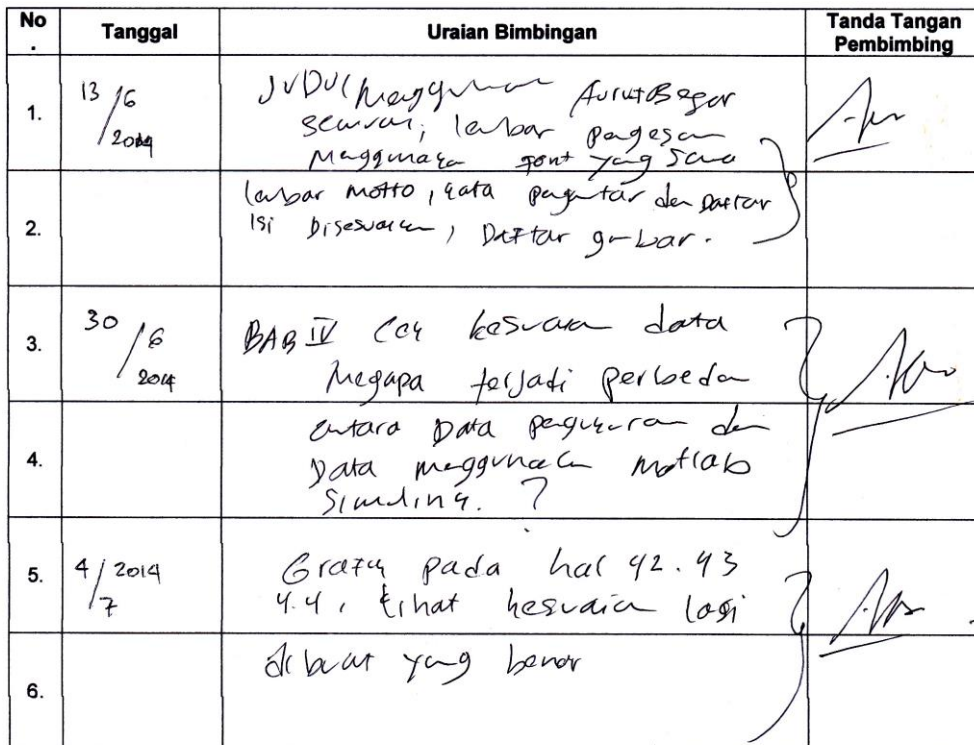 No. Tanggal Uraian Bimbingan Tanda Tangan Pembimbing
1. 13/6 2014 JUDUL menggunakan huruf Besar
semua, lembar pengesan
menggunakan font yang sama
2. lembar motto, kata pengantar dan Daftar
isi Disesuaikan, Daftar gambar.
3. 30/6 2014 BAB IV Cek kesuaian data
Megapa terjadi perbedan
4. antara Data pengukuran dan
Data menggunakan matlab
Simulink. ?
5. 4/7 2014 Grafik pada hal 42. 43
4.4, lihat kesuaian lagi
6. di buat yang benar